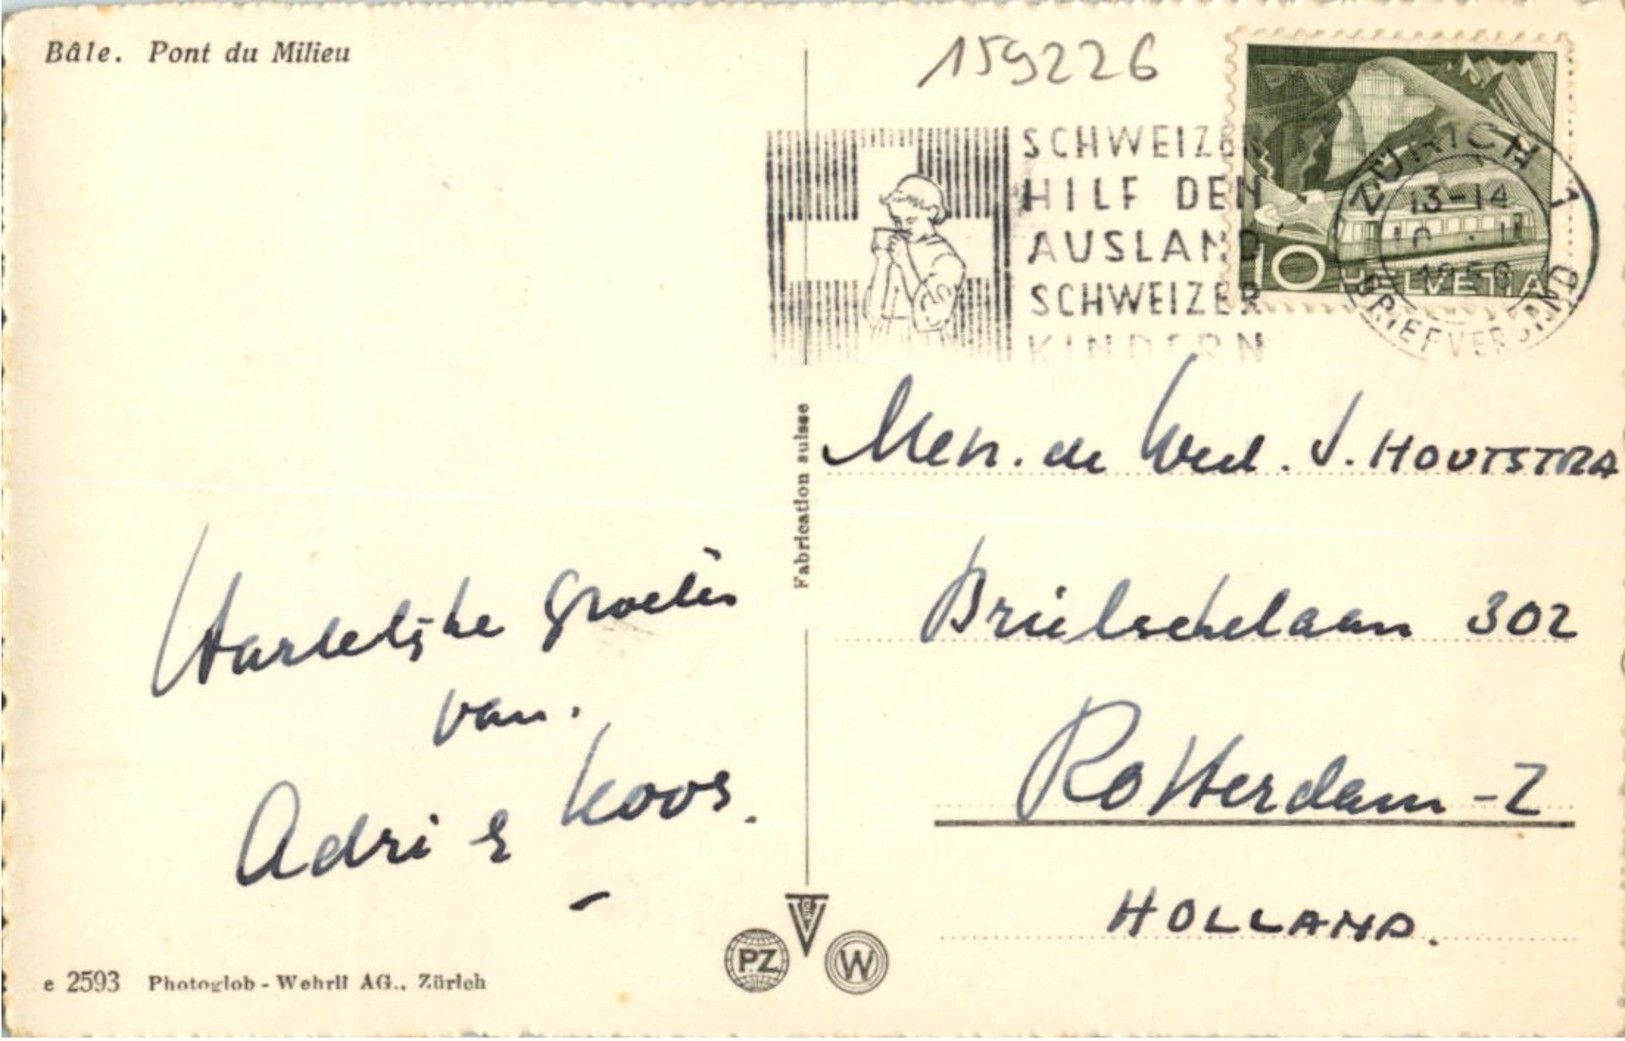 Bâle. Pont du Milieu
159226
SCHWEIZER
HILF DEN
AUSLAND
SCHWEIZER
KINDERN
ZÜRICH 1
13-14
BRIEFVERSAND
10 HELVETIA
Fabrication suisse
Men. de Wed. J. HOUTSTRA
Brielschelaan 302
Rotterdam - Z
HOLLAND.
Hartelijke groeten
van.
Adri & Koos.
PZ
W
e 2593 Photoglob - Wehrli AG., Zürich